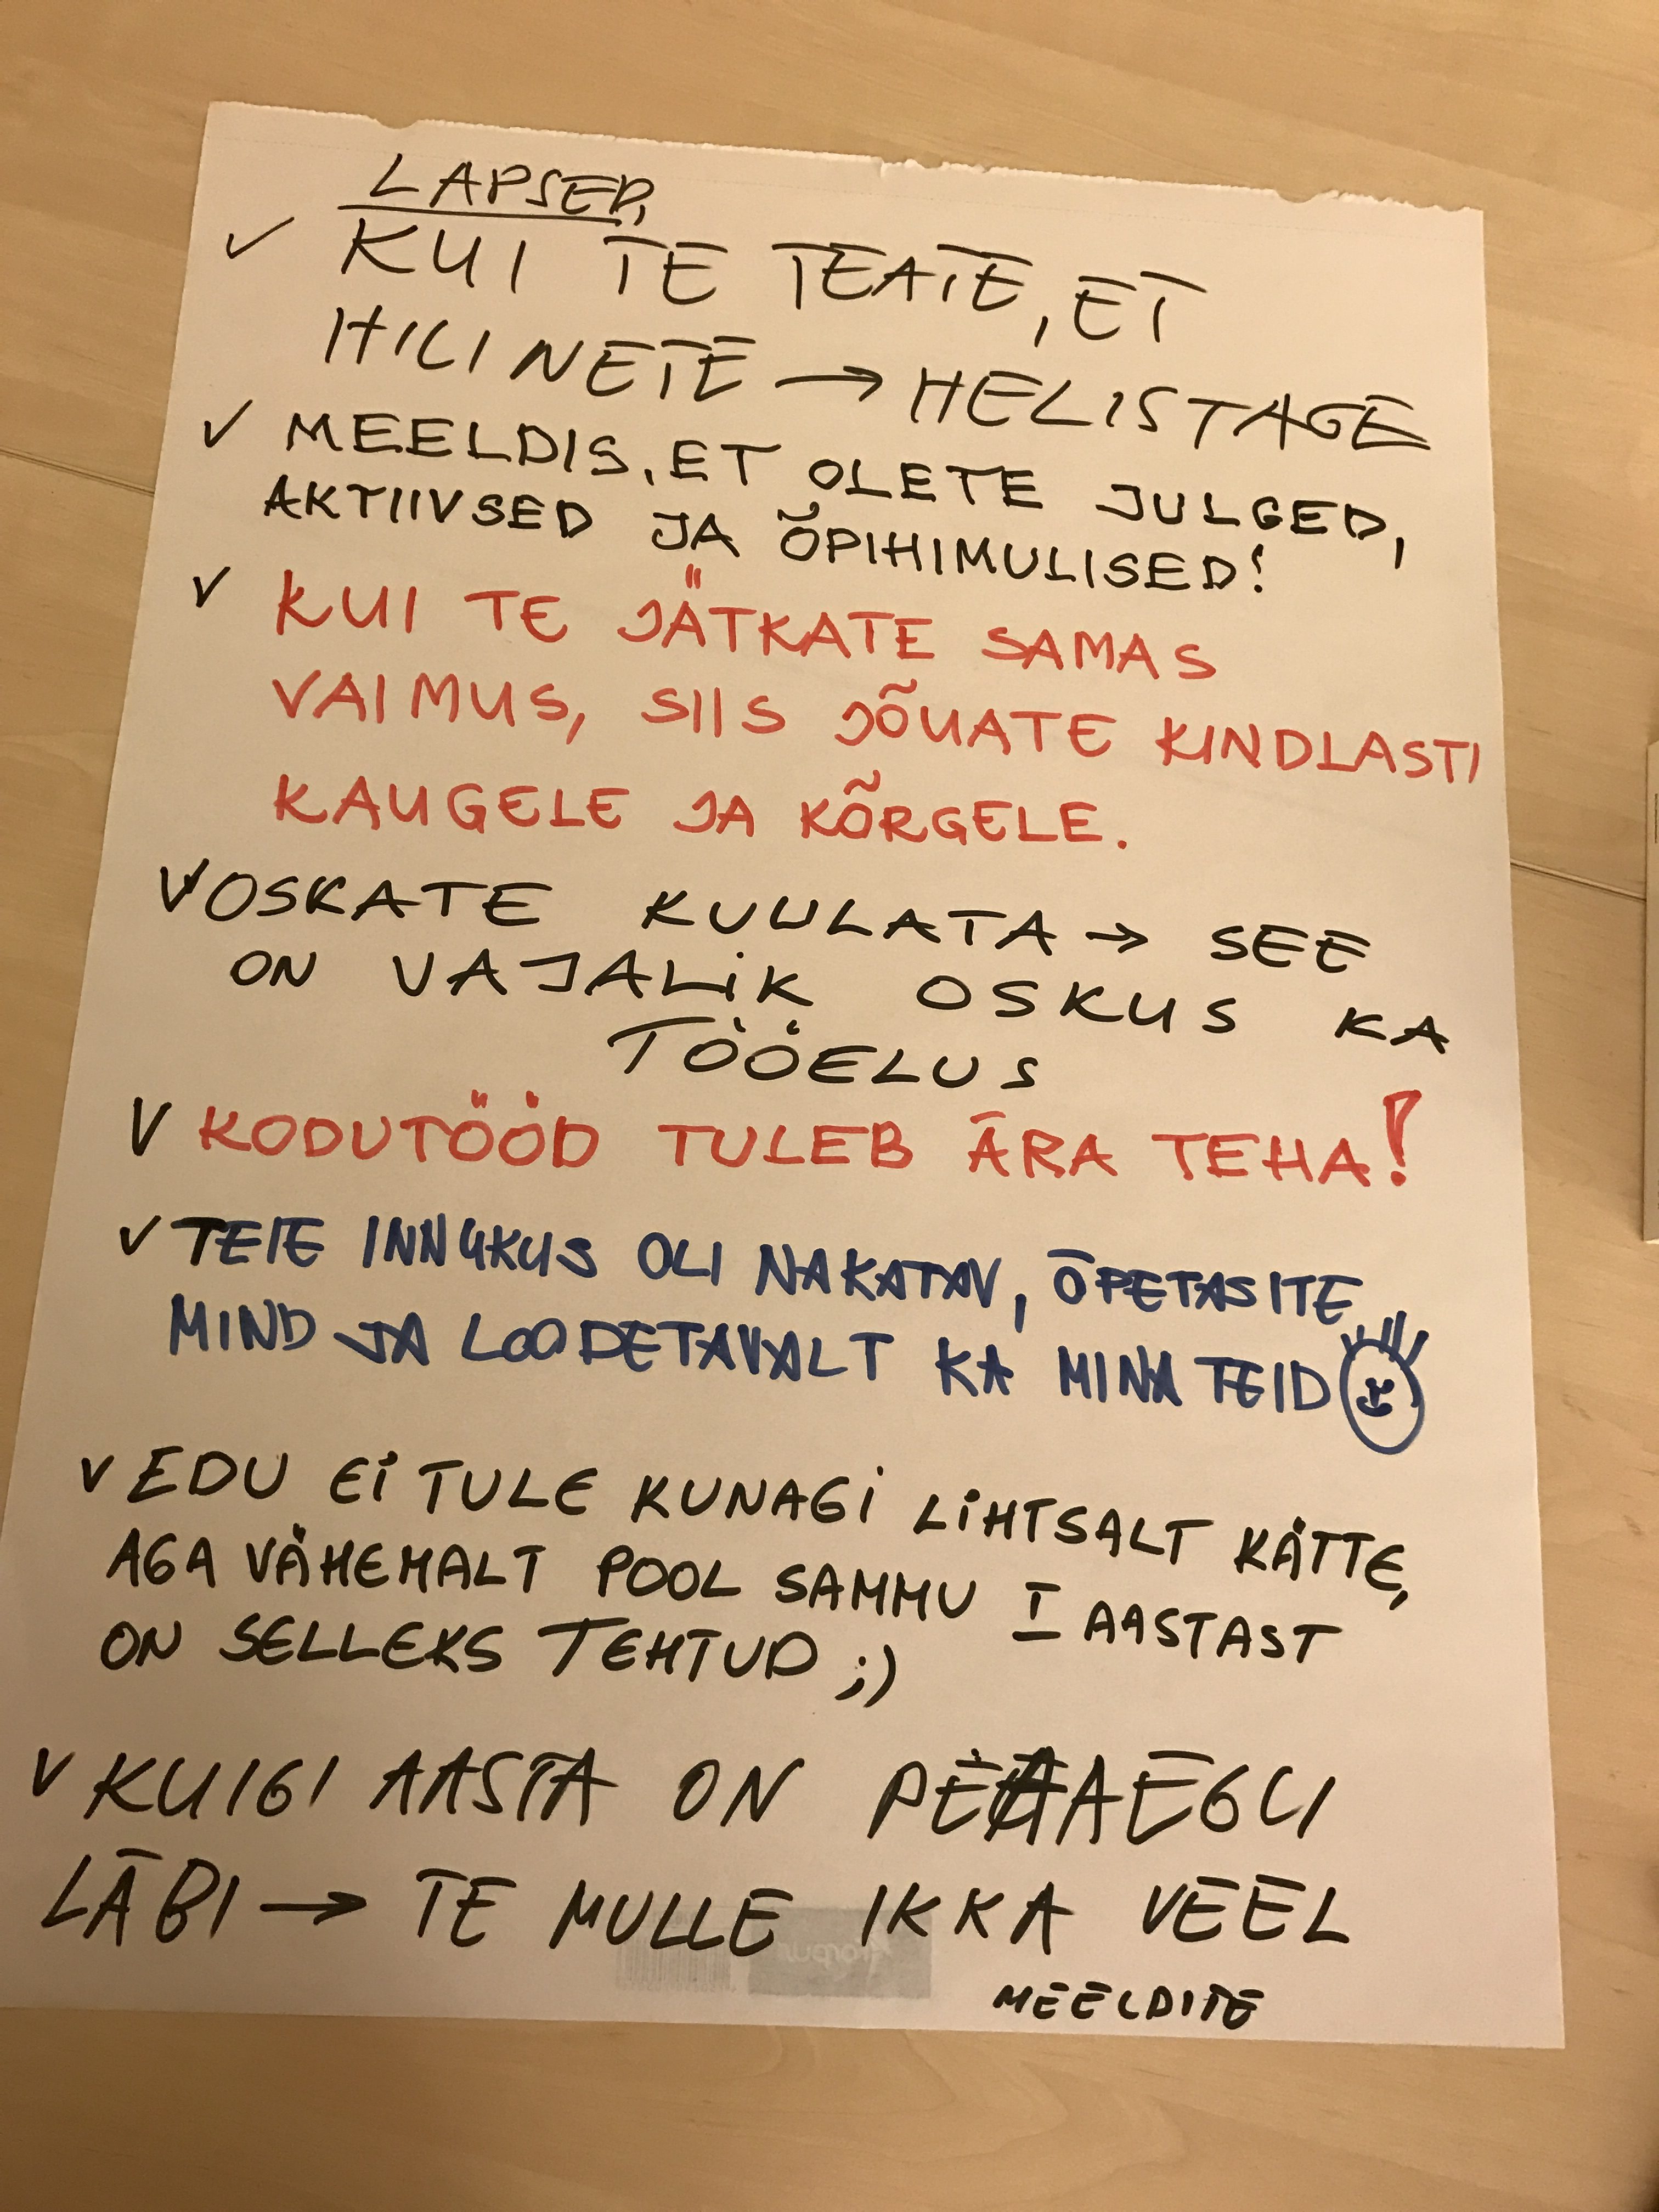 LAPSED,
✓ KUI TE TEATE, ET
HILINETE → HELISTAGE
✓ MEELDIS, ET OLETE JULGED,
AKTIIVSED JA ÕPIHIMULISED!
✓ KUI TE JÄTKATE SAMAS
VAIMUS, SIIS JÕUATE KINDLASTI
KAUGELE JA KÕRGELE.
✓ OSKATE KUULATA → SEE
ON VAJALIK OSKUS KA
TÖÖELUS
✓ KODUTÖÖD TULEB ÄRA TEHA!
✓ TEIE INNUKUS OLI NAKATAV, ÕPETASITE
MIND JA LOODETAVALT KA MINA TEID
✓ EDU EI TULE KUNAGI LIHTSALT KÄTTE,
AGA VÄHEMALT POOL SAMMU I AASTAST
ON SELLEKS TEHTUD ;)
✓ KUIGI AASTA ON PEAAEGU
LÄBI → TE MULLE IKKA VEEL
MEELDITE